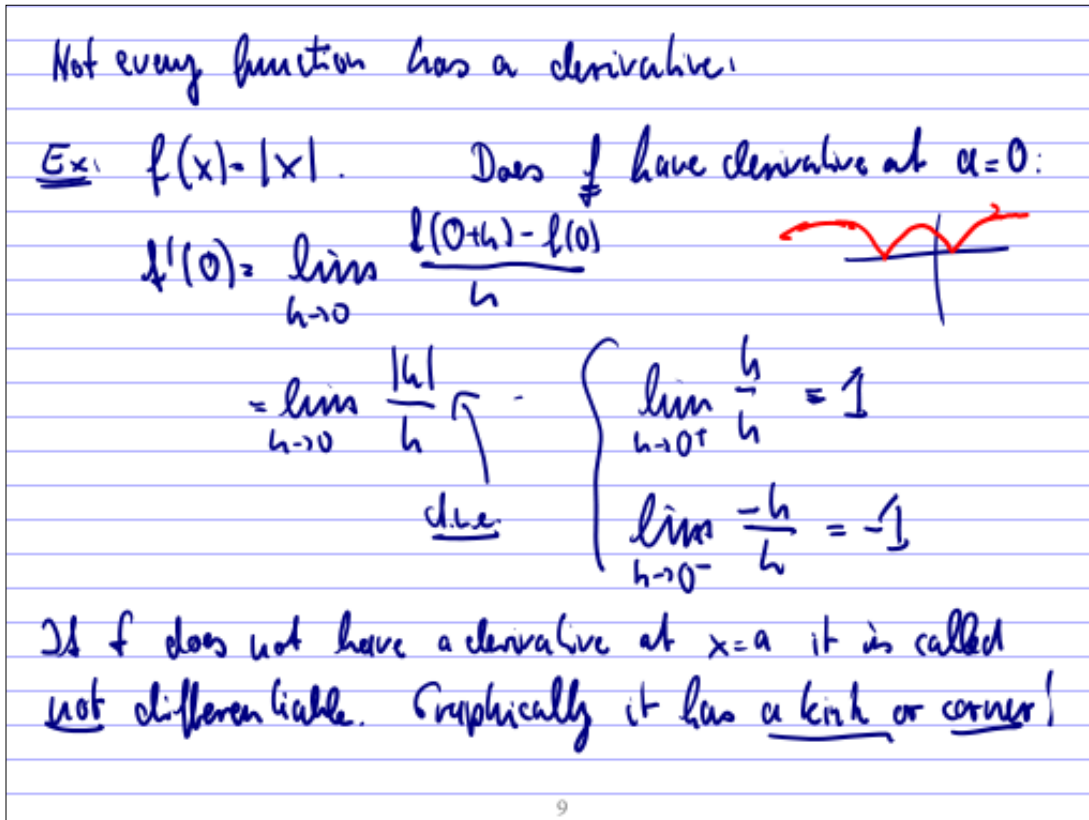 Not every function has a derivative.
Ex: f(x) = |x|. Does f have derivative at a=0:
f'(0) = lim h→0 (f(0+h) - f(0))/h
= lim h→0 |h|/h - { lim h→0+ h/h = 1
d.n.e. lim h→0- -h/h = -1
If f does not have a derivative at x=a it is called
not differentiable. Graphically it has a kink or corner!
9